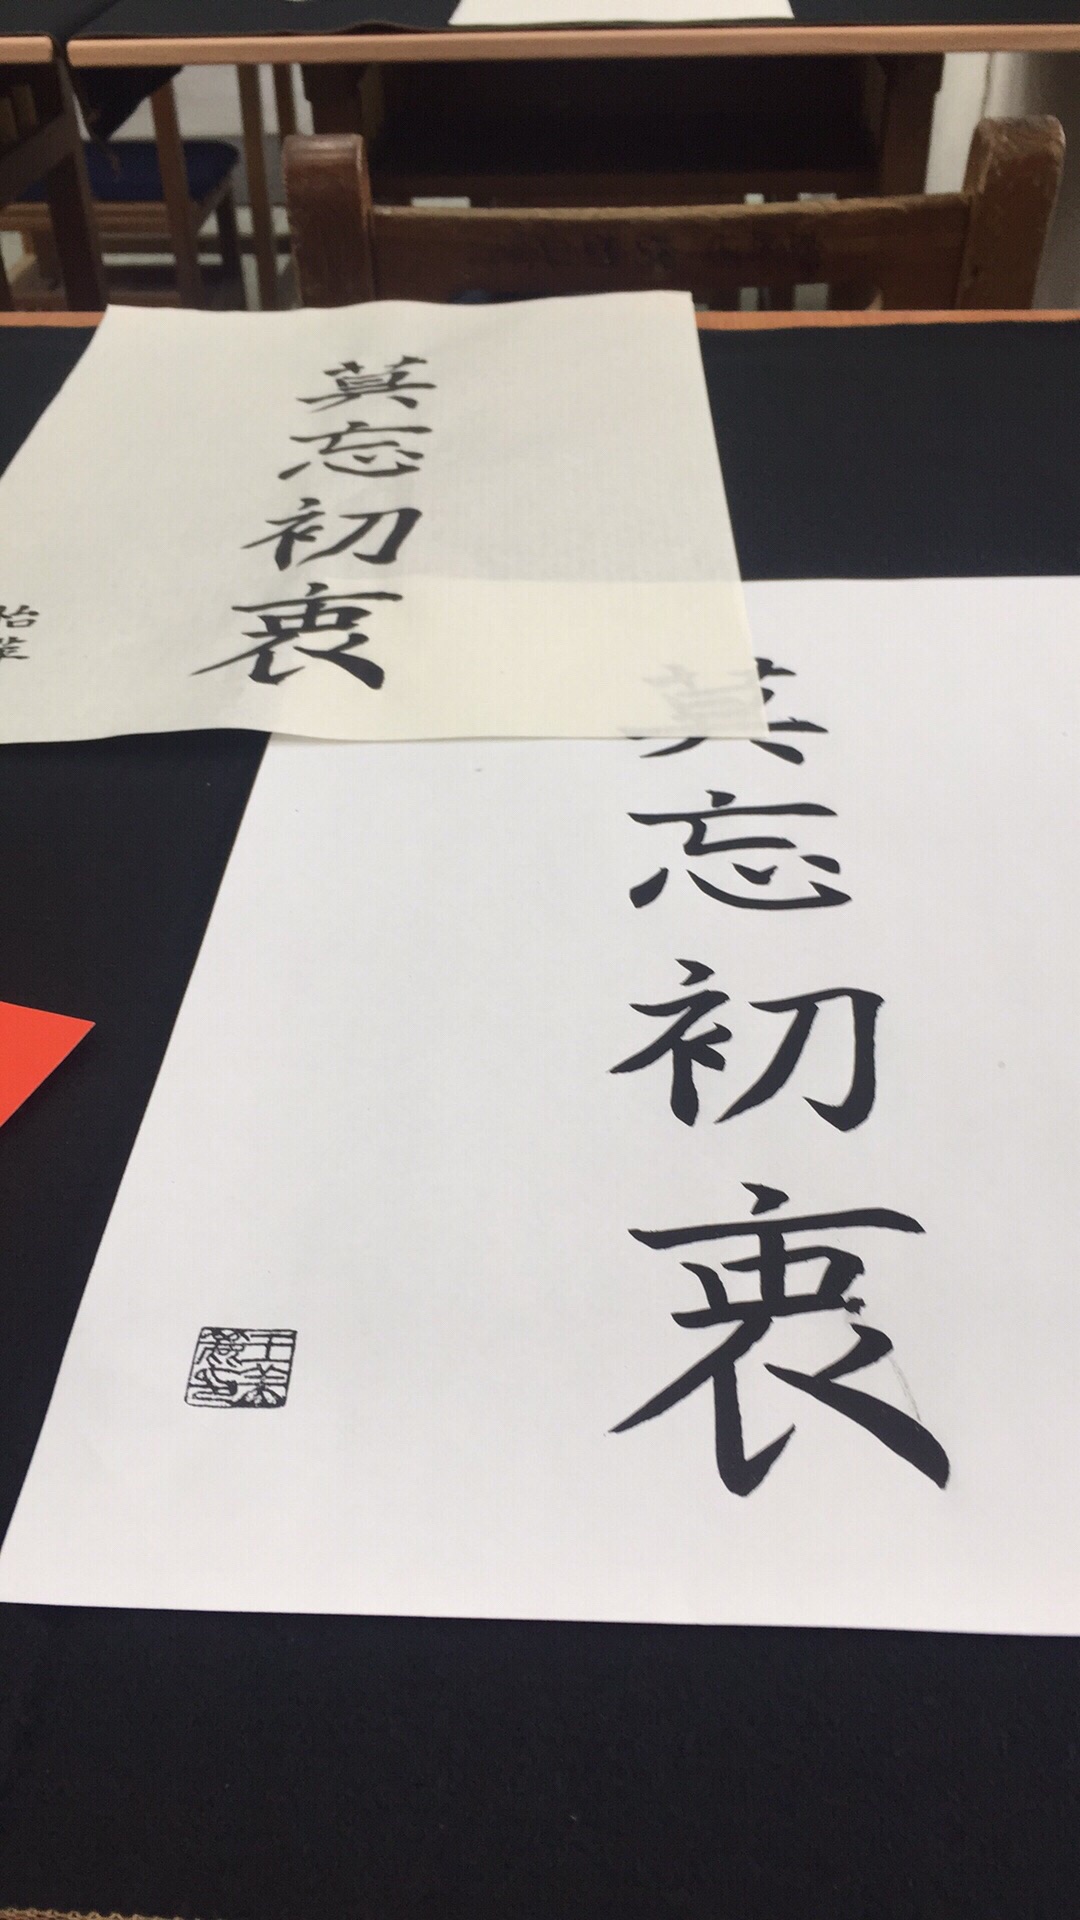 莫忘初衷
怡
莫忘初衷